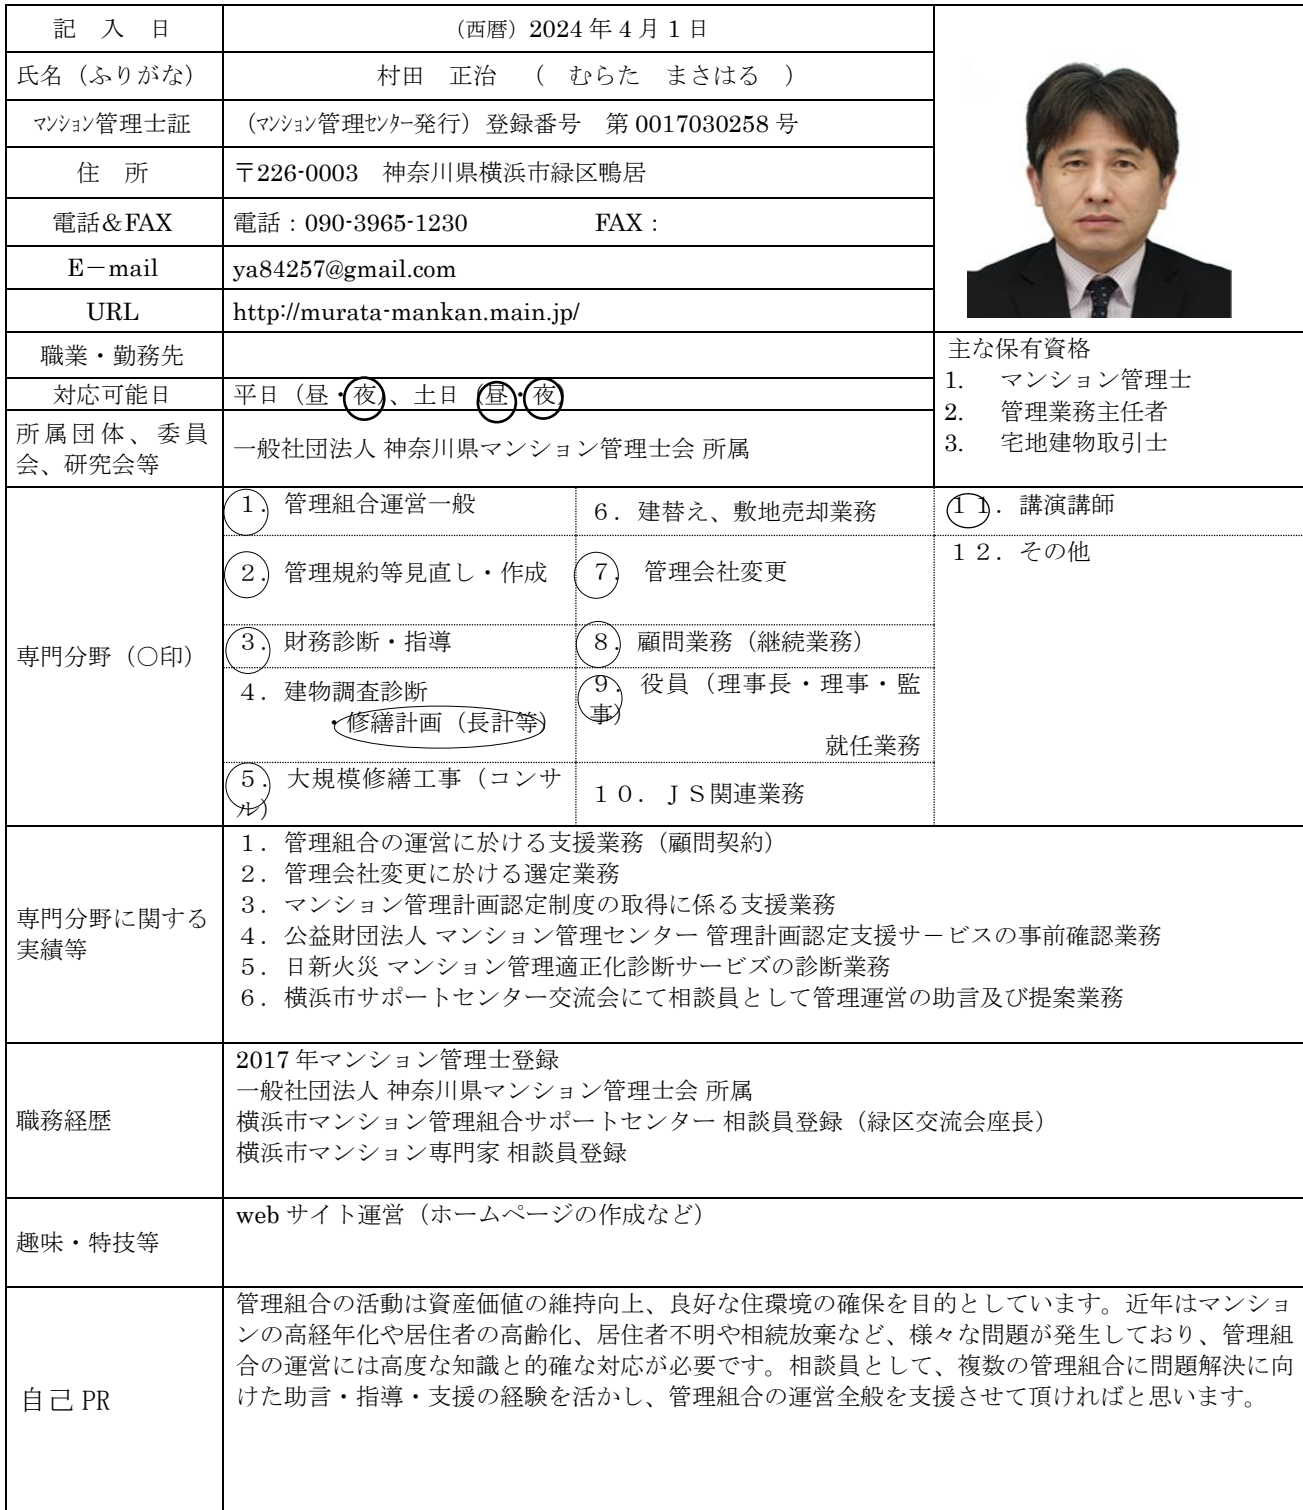 記　入　日
（西暦）2024 年 4 月 1 日
氏名（ふりがな）
村田　正治　（　むらた　まさはる　）
ﾏﾝｼｮﾝ管理士証
（ﾏﾝｼｮﾝ管理ｾﾝﾀｰ発行）登録番号　第 0017030258 号
住　所
〒226-0003　神奈川県横浜市緑区鴨居
電話＆FAX
電話：090-3965-1230　　　FAX：
E－mail
ya84257@gmail.com
URL
http://murata-mankan.main.jp/
職業・勤務先
対応可能日
平日（昼・夜）、土日（昼・夜）
所属団体、委員
会、研究会等
一般社団法人 神奈川県マンション管理士会 所属
主な保有資格
1.　マンション管理士
2.　管理業務主任者
3.　宅地建物取引士
専門分野（〇印）
１．管理組合運営一般
２．管理規約等見直し・作成
３．財務診断・指導
４．建物調査診断
・修繕計画（長計等）
５．大規模修繕工事（コンサ
ル）
６．建替え、敷地売却業務
７．管理会社変更
８．顧問業務（継続業務）
９．役員（理事長・理事・監
事）
就任業務
１０．ＪＳ関連業務
１１．講演講師
１２．その他
専門分野に関する
実績等
１．管理組合の運営に於ける支援業務（顧問契約）
２．管理会社変更に於ける選定業務
３．マンション管理計画認定制度の取得に係る支援業務
４．公益財団法人 マンション管理センター 管理計画認定支援サ－ビスの事前確認業務
５．日新火災 マンション管理適正化診断サービズの診断業務
６．横浜市サポートセンター交流会にて相談員として管理運営の助言及び提案業務
職務経歴
2017 年マンション管理士登録
一般社団法人 神奈川県マンション管理士会 所属
横浜市マンション管理組合サポートセンター 相談員登録（緑区交流会座長）
横浜市マンション専門家 相談員登録
趣味・特技等
web サイト運営（ホームページの作成など）
自己 PR
管理組合の活動は資産価値の維持向上、良好な住環境の確保を目的としています。近年はマンショ
ンの高経年化や居住者の高齢化、居住者不明や相続放棄など、様々な問題が発生しており、管理組
合の運営には高度な知識と的確な対応が必要です。相談員として、複数の管理組合に問題解決に向
けた助言・指導・支援の経験を活かし、管理組合の運営全般を支援させて頂ければと思います。